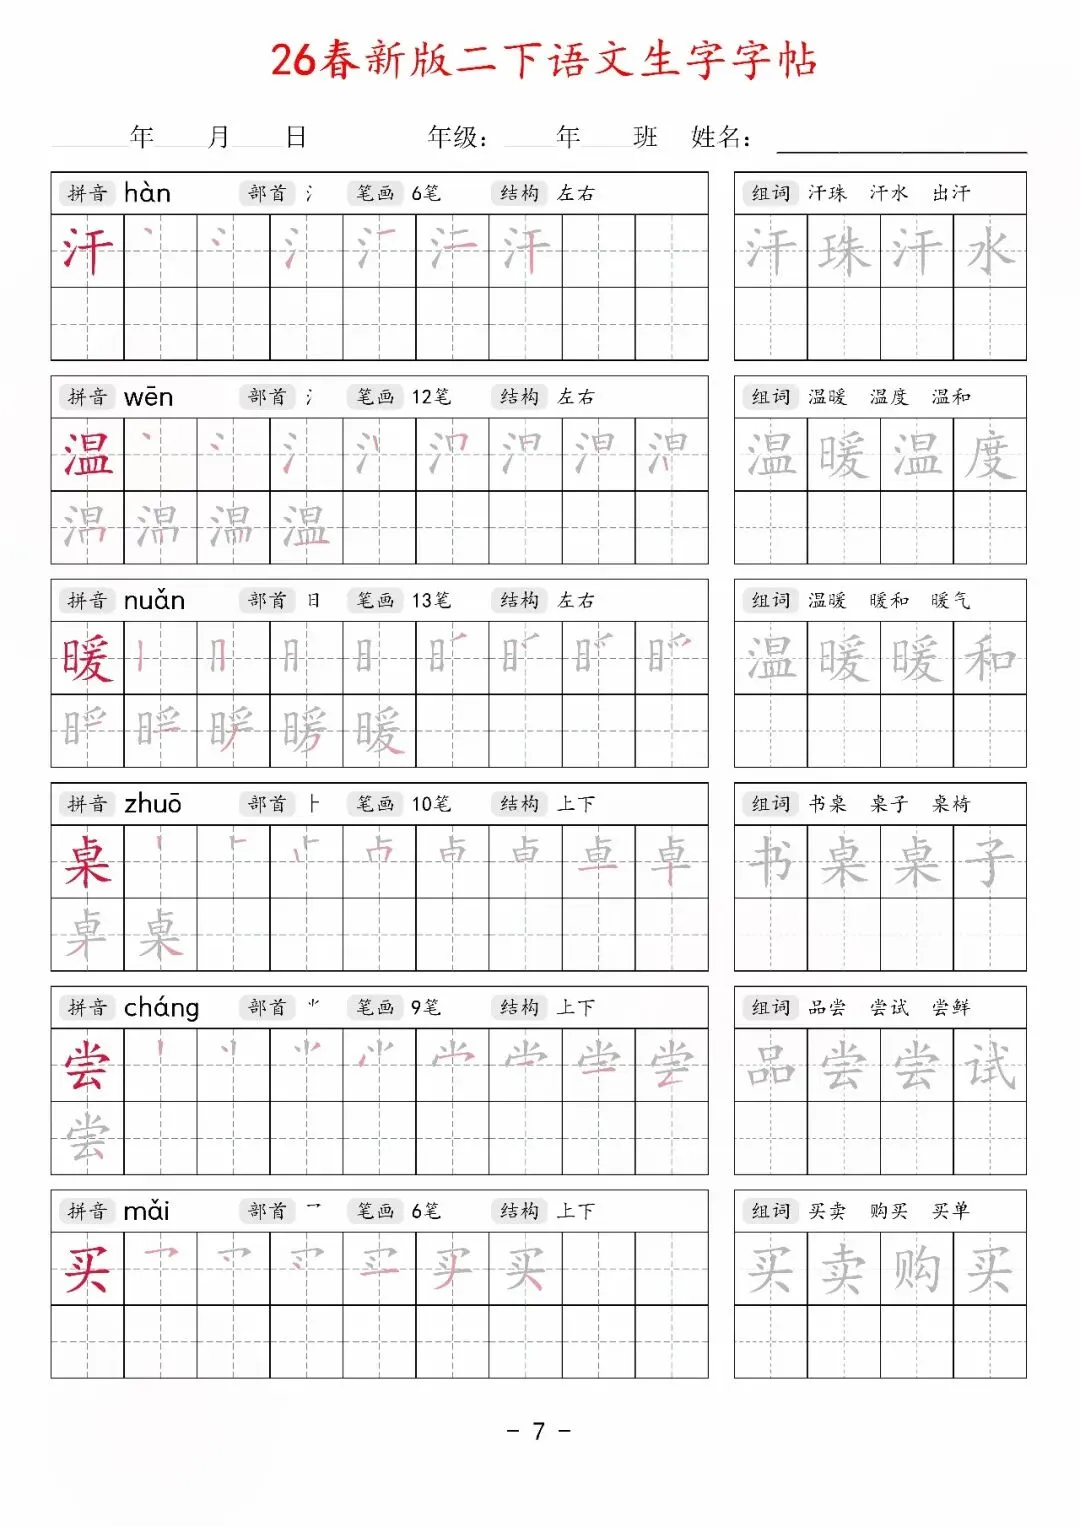 26春新版二下语文生字字帖
年 月 日 年级： 年 班 姓名：
拼音 hàn 部首 氵 笔画 6笔 结构 左右 组词 汗珠 汗水 出汗
汗 汗 汗珠汗水
拼音 wēn 部首 氵 笔画 12笔 结构 左右 组词 温暖 温度 温和
温 温暖温度
温
拼音 nuǎn 部首 日 笔画 13笔 结构 左右 组词 温暖 暖和 暖气
暖 温暖暖和
暖
拼音 zhuō 部首 ⺊ 笔画 10笔 结构 上下 组词 书桌 桌子 桌椅
桌 书桌桌子
桌
拼音 cháng 部首 ⺌ 笔画 9笔 结构 上下 组词 品尝 尝试 尝鲜
尝 品尝尝试
尝
拼音 mǎi 部首 乛 笔画 6笔 结构 上下 组词 买卖 购买 买单
买 买 买卖购买
- 7 -